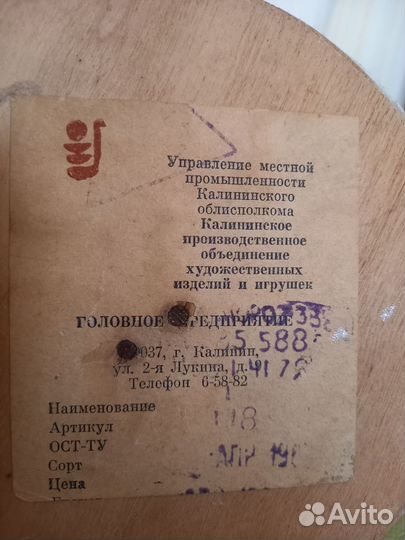 Управление местной
промышленности
Калининского
облисполкома
Калининское
производственное
объединение
художественных
изделий и игрушек
ГОЛОВНОЕ ПРЕДПРИЯТИЕ
037, г. Калинин,
ул. 2-я Лукина, д.
Телефон 6-58-82
Наименование
Артикул 118
ОСТ-ТУ
Сорт АПР
Цена
Avito